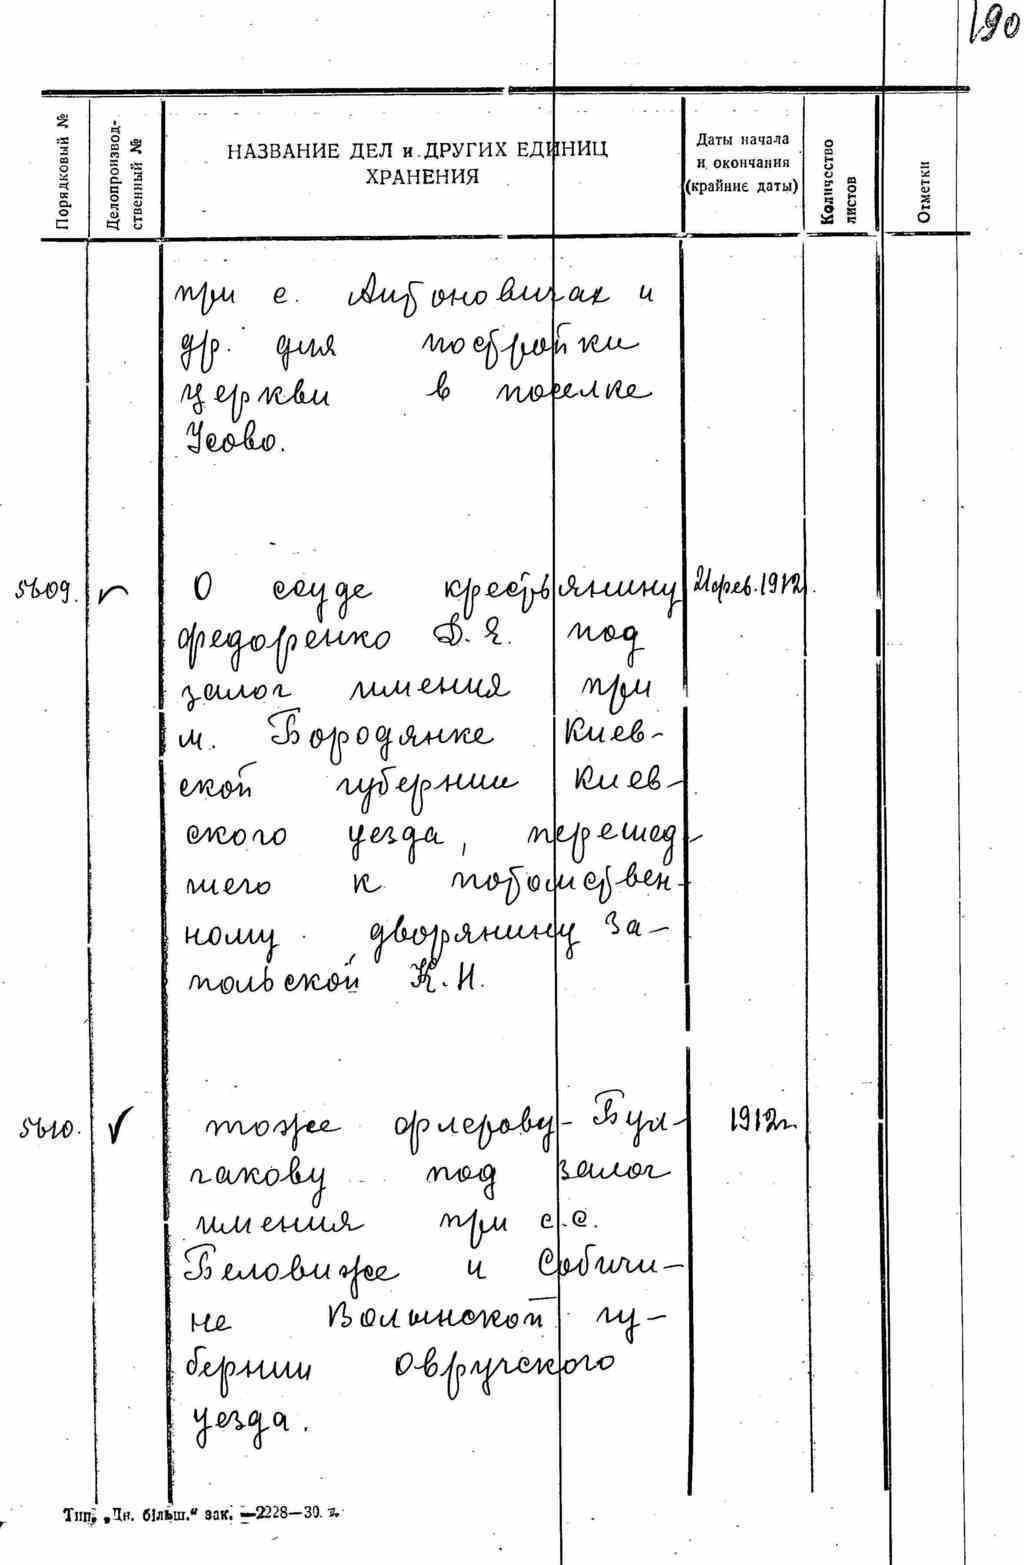 190
Порядковый №
Делопроизвод-
ственный №
НАЗВАНИЕ ДЕЛ и ДРУГИХ ЕДИНИЦ
ХРАНЕНИЯ
Даты начала
и окончания
(крайние даты)
Количество
листов
Отметки
при с. Антоновичах и
др. для постройки
церкви в поселке
Усово.
5609. О ссуде крестьянину 21 фев. 1912
Федоренко Д. Я. под
залог имения при
м. Бородянке Киев-
ской губернии Киев-
ского уезда, перешед-
шего к потомствен-
ному дворянину За-
польской К. Н.
5610. тоже Флерову-Бул- 1912г.
гакову под залог
имения при с.с.
Беловиже и Собичи-
не Волынской гу-
бернии Овручского
уезда.
Тип. „Дн. більш.“ зак. —2228—30.